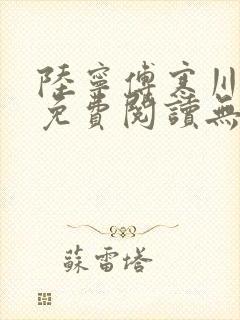 陸寧傅寒川
免費閱讀無
蘇雷塔